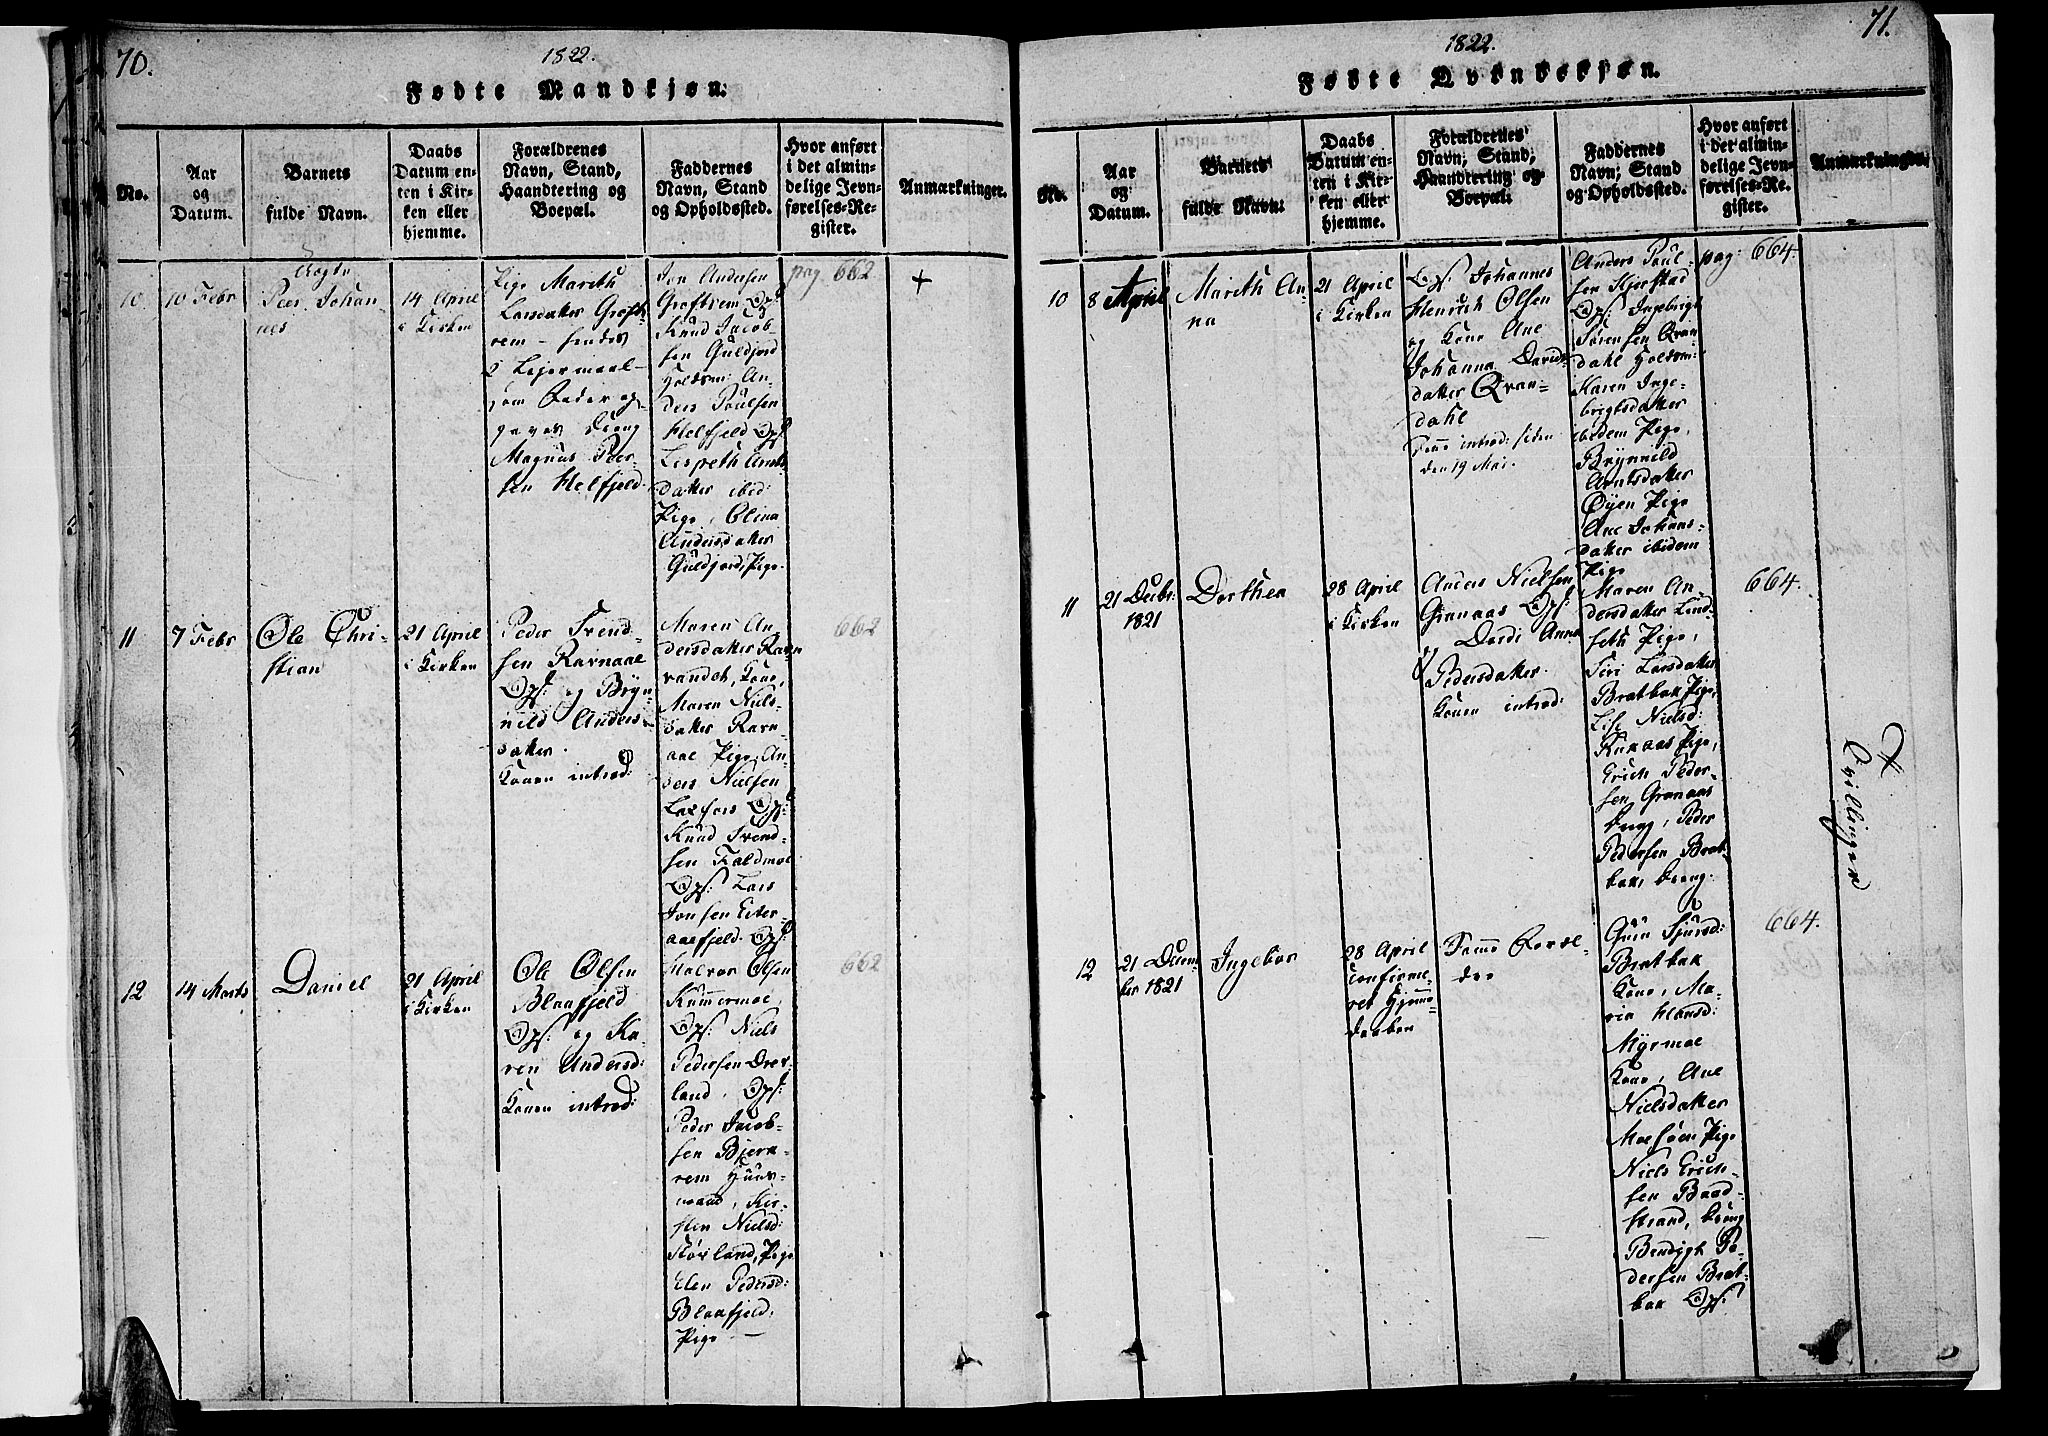 70.
1822.
Fødte Mandkjøn.
No.
Aar
og
Datum.
Barnets
fulde Navn.
Daabs
Datum en-
ten i Kir-
ken eller
hjemme.
Forældrenes
Navn, Stand,
Haandtering og
Boepæl.
Faddernes
Navn, Stand
og Opholdssted.
Hvor anført
i det almin-
delige Jevn-
førelses-Re-
gister.
Anmærkninger.
10
10 Febr
Uægte
Peer Johan
nes
14 April
i Kirken
Pige Marith
Larsdatter Grøft-
rem - hendes
2 Lejermaal -
som Fader op-
gives Dreng
Magnus Peer-
sen Helfjeld
Jon Andersen
Grøftrem Op:
Knud Jacob-
sen Guldfjord
Holdsm: An-
ders Poulsen
Helfjeld Op:
Lispeth Arnts
datter ibid:
Pige, Olina
Andersdatter
Guldfjord, Pige.
pag. 662
+
11
7 Febr
Ole Chri-
stian
21 April
i Kirken
Peder Svend-
sen Ravnaae
Ops: og Bryn
nild Anders-
datter.
Konen introd:
Maren An
dersdatter Ra
vandet, Kone,
Maren Niels
datter Ravn-
aae Pige, An-
ders Nielsen
Laxfors Op:
Knud Svend-
sen Faldmoe
Ops: Lars
Jonsen Eiter-
aaefjeld. Op:
662
12
14 Marts
Daniel
21 April
i Kirken
Ole Olsen
Blaafjeld
Ops: og Ka-
ren Andersd:
Konen introd:
Halvor Olsen
Kummermoe,
Ops: Niels
Pedersen Drev-
land, Ops:
Peder Jacob-
sen Bjern-
rem Huus-
mand, Kir-
sten Nielsd:
Storland, Pige
Elen Pedersd:
Blaafjeld,
Pige —
662
71.
1822.
Fødte Qvindekjøn.
No.
Aar
og
Datum.
Barnets
fulde Navn.
Daabs
Datum en-
ten i Kir-
ken eller
hjemme.
Forældrenes
Navn, Stand,
Haandtering og
Boepæl.
Faddernes
Navn, Stand
og Opholdssted.
Hvor anført
i det almin-
delige Jevn-
førelses-Re-
gister.
Anmærkninger.
10
8 April
Marith An-
na
21 April
i Kirken
Ops: Johannes
Henrich Olsen
og Kone Ane
Johanna Davids
datter Qvan-
dahl
introd: siden
den 19 Mai.
Anders Poul-
sen Kjerstad
Ops: Ingebrigt
Sørensen Qvan
dahl Holdsm:
Karen Inge-
brigtsdatter
ibidem Pige,
Brynnild
Arntsdatter
Øyen Pige
Ane Johans-
datter ibidem
Pige
pag: 664.
11
21 Decbr.
1821
Dorthea
28 April
i Kirken
Anders Nielsen
Grønaas Ops:
og Dordi Anna
Pedersdatter
Konen introd:
Maren An-
dersdatter Lind-
seth Pige,
Siri Larsdatter
Bratbak Pige,
Lise Nielsd:
Pige,
Erich Peder-
sen Grønaas
Dreng, Peder
Pedersen Brat-
bak, Dreng.
664.
+
Tvillinger
12
21 Decem-
ber 1821
Ingebor
28 April
Confirme-
ret Hjemme
daaben
Samme Foræl-
dre
Guru Sjursd:
Bratbak
Kone, Ma-
ria Hansd:
Myrmoe
Kone, Ane
Nielsdatter
Pige
Niels Erich-
sen Baad-
strand, Dreng
Bendigt Pe-
dersen Brat-
bak Ops:
664.